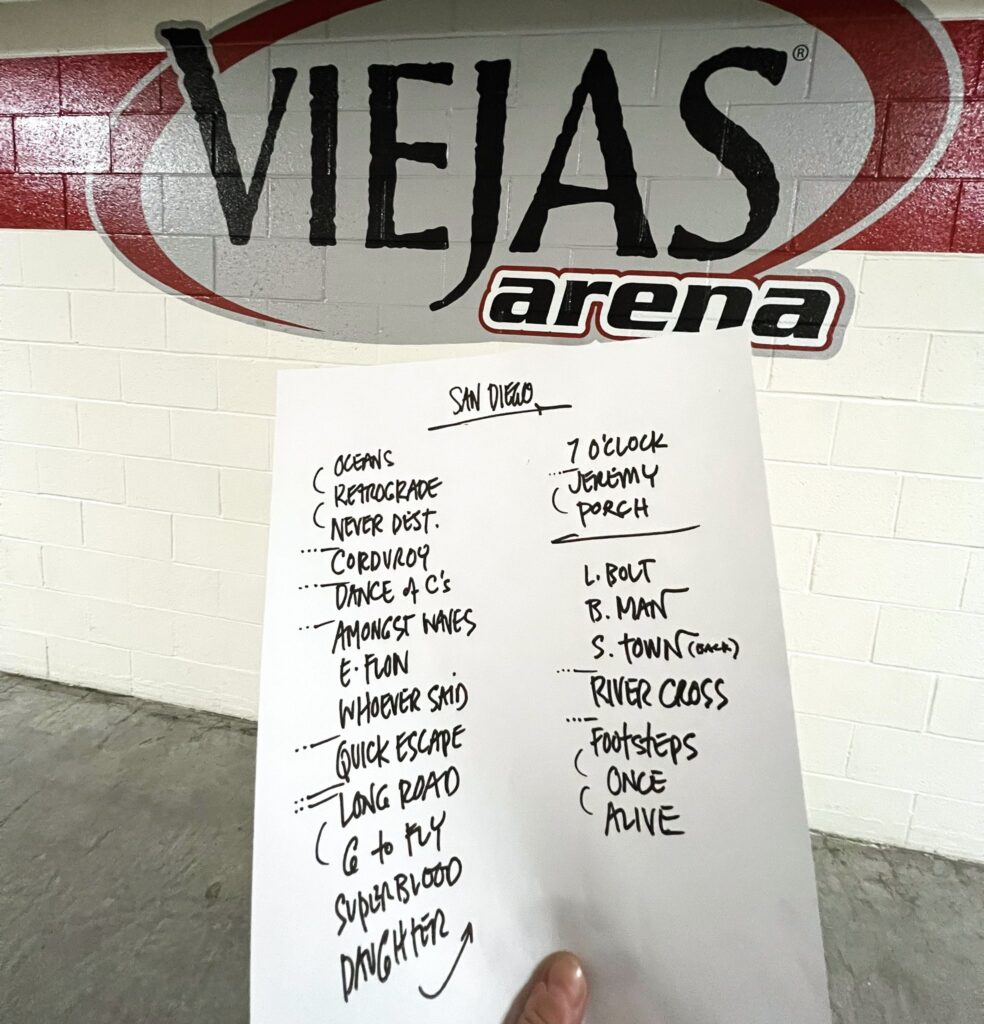 VIEJAS®
arena
SAN DIEGO
OCEANS
RETROGRADE
NEVER DEST.
CORDUROY
DANCE of C's
AMONGST WAVES
E. FLON
WHOEVER SAID
QUICK ESCAPE
LONG ROAD
G to FLY
SUPERBLOOD
DAUGHTER
7 O'CLOCK
JEREMY
PORCH
L. BOLT
B. MAN
S. TOWN (BACK)
RIVER CROSS
FOOTSTEPS
ONCE
ALIVE